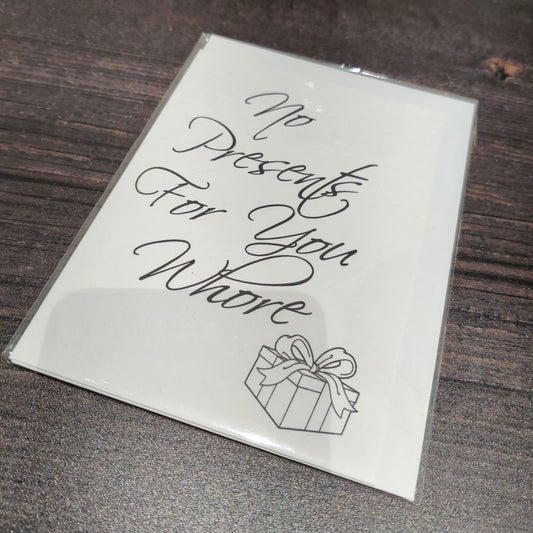 No
Presents
For You
Whore